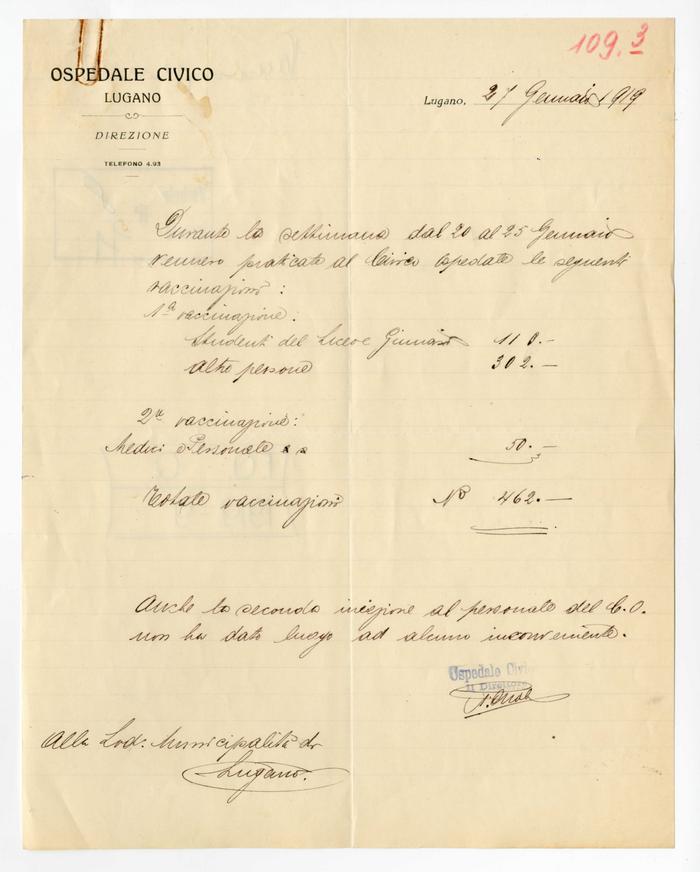 109.3
OSPEDALE CIVICO
LUGANO
DIREZIONE
TELEFONO 4.93
Lugano, 27 Gennaio 1919
Durante la settimana dal 20 al 25 Gennaio
vennero praticate al Civico Ospedale le seguenti
vaccinazioni:
1ª vaccinazione:
Studenti del Liceo e Ginnasio 110.-
Altre persone 302.-
2ª vaccinazione:
Medici e Personale 50.-
Totale vaccinazioni No 462.-
Anche la seconda iniezione al personale del C.O.
non ha dato luogo ad alcuno inconveniente.
Ospedale Civico
Il Direttore
Alla Lod: Municipalità di
Lugano.